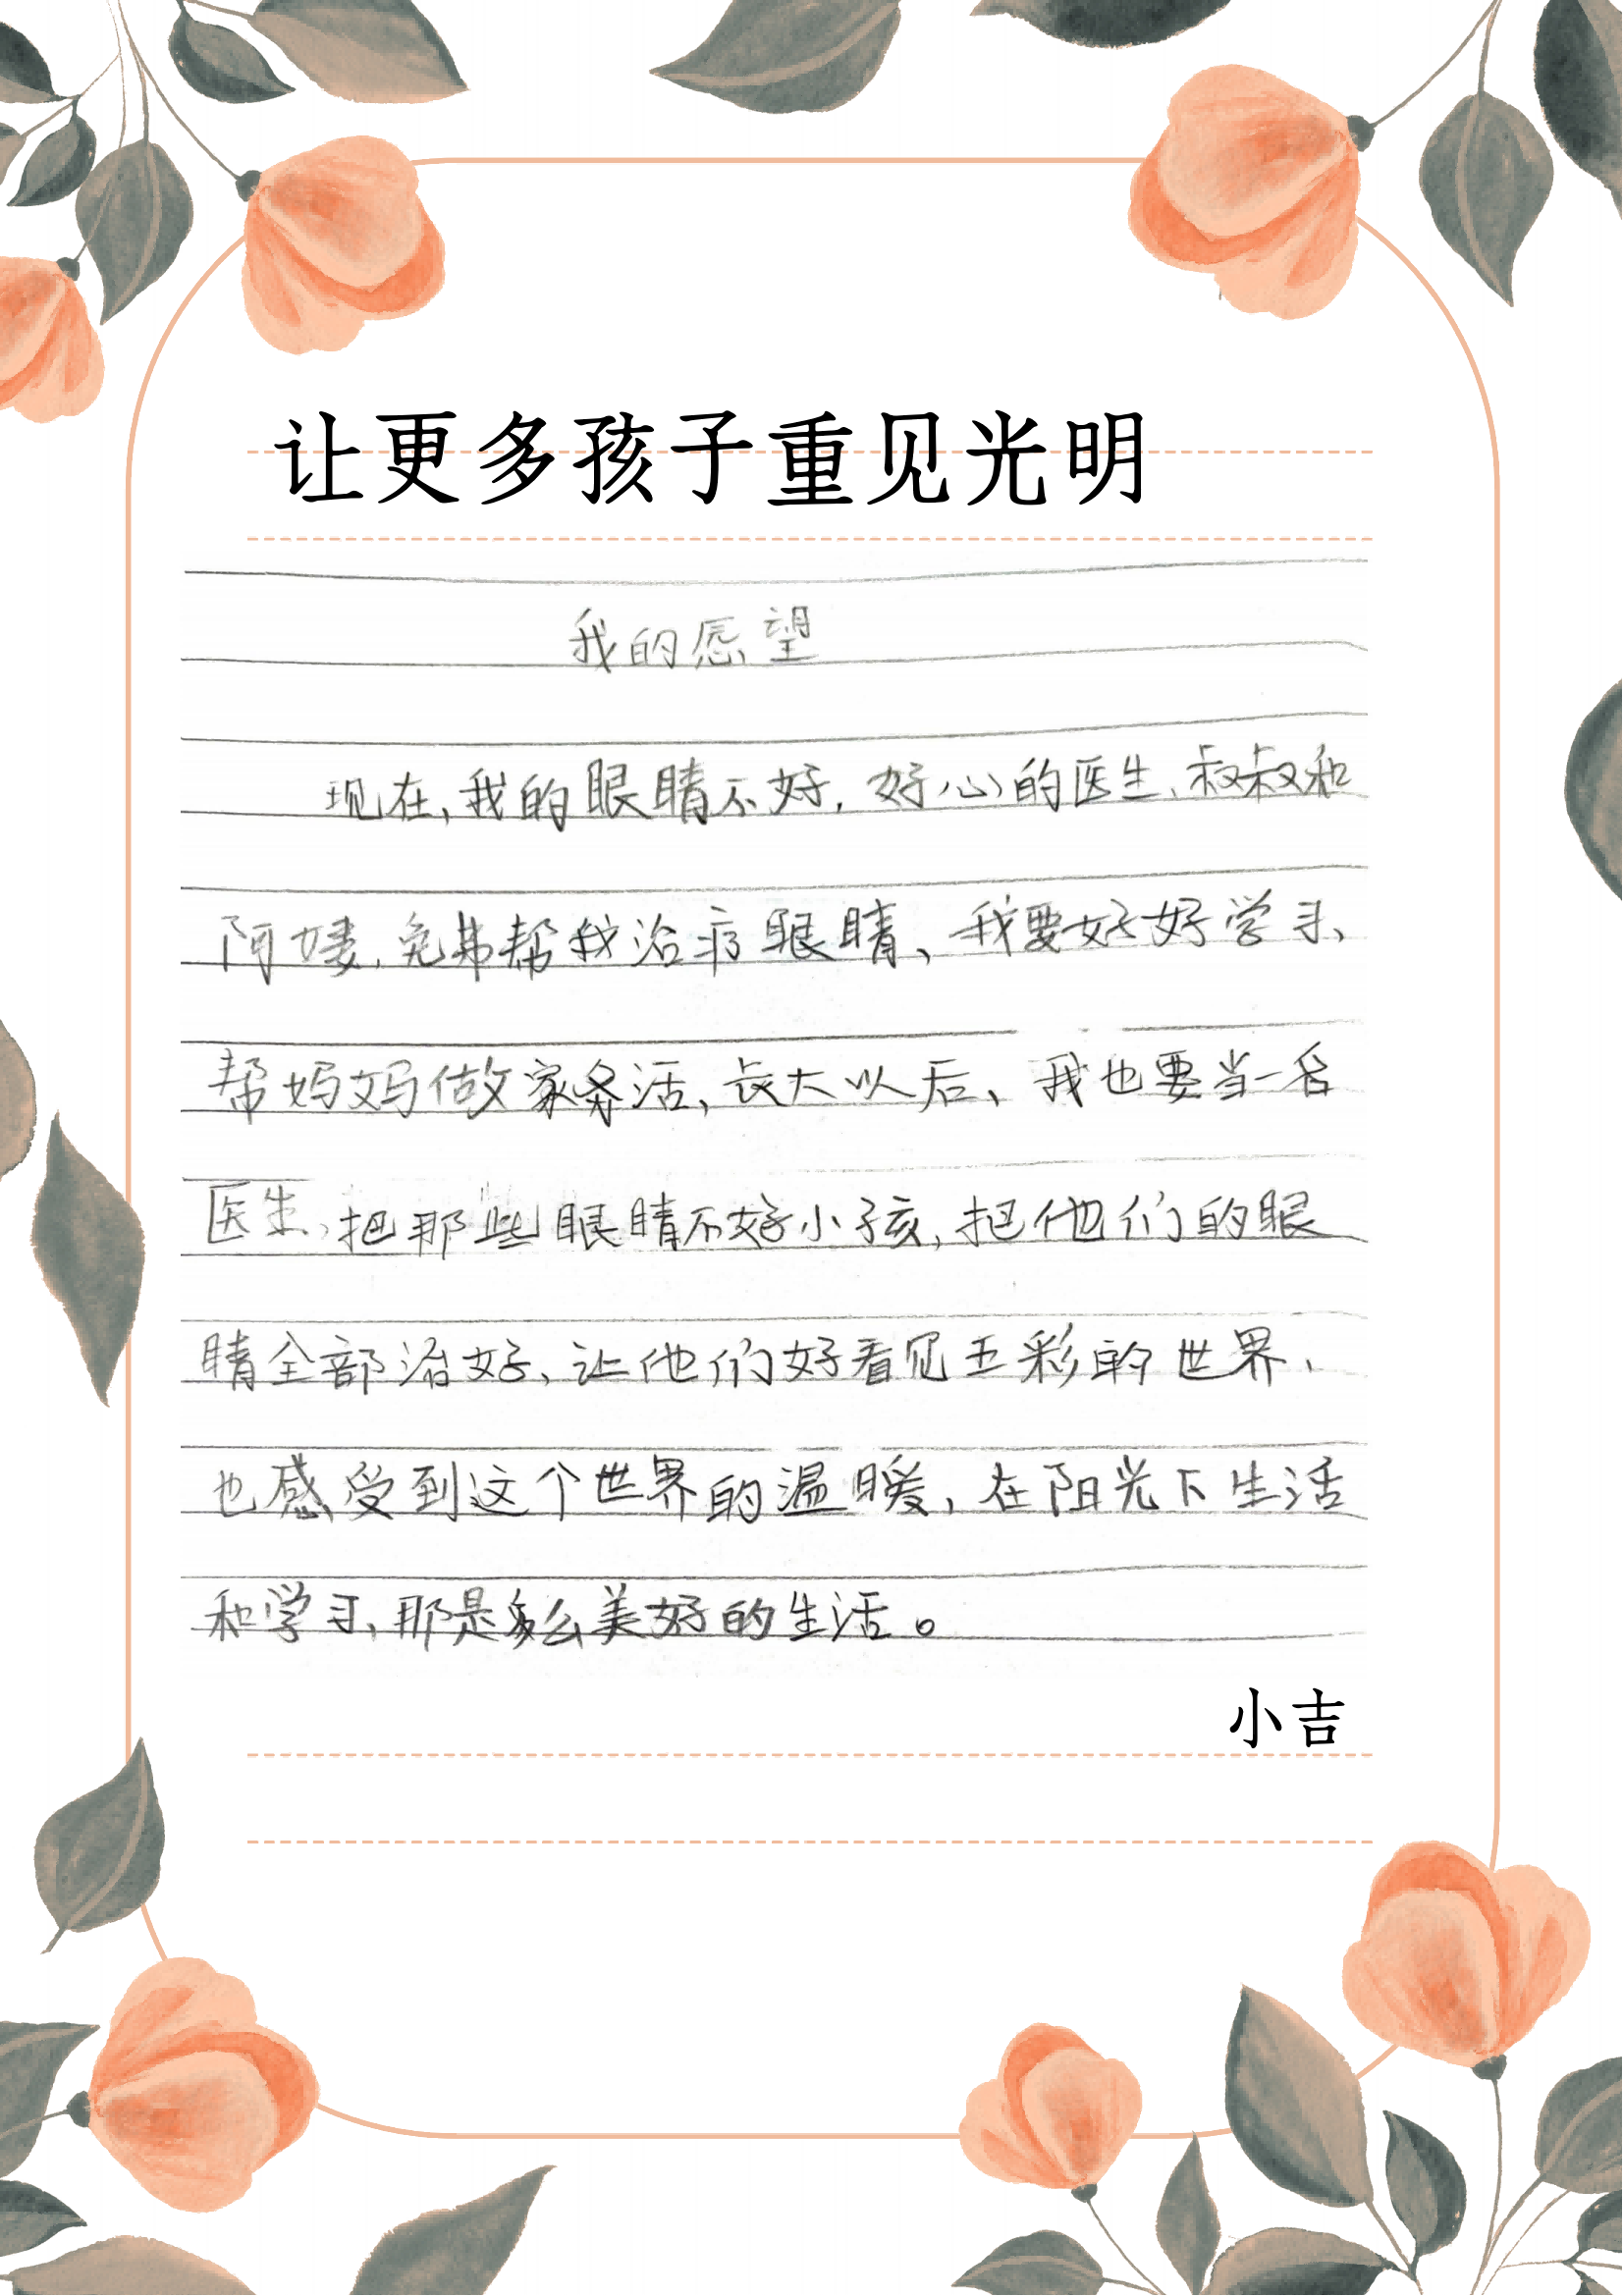 让更多孩子重见光明
我的愿望
现在,我的眼睛不好,好心的医生、叔叔和
阿姨,免费帮我治疗眼睛、我要好好学习、
帮妈妈做家务活,长大以后、我也要当一名
医生,把那些眼睛不好小孩,把他们的眼
睛全部治好、让他们好看见五彩的世界、
也感受到这个世界的温暖,在阳光下生活
和学习,那是多么美好的生活。
小吉